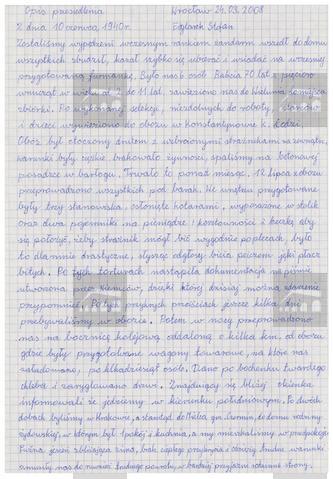 Opis przesiedlenia Wrocław 29.03.2008
Z dnia 10 czerwca, 1940r. Stefan
Zostaliśmy wypędzeni wczesnym rankiem żandarm wszedł do domu
wszystkich zbudził, kazał szybko się ubierać i wsiadać na wcześniej
przygotowaną furmankę. Było nas 6 osób Babcia 70 lat, pięcioro
wnucząt w wieku od 2 do 11 lat, zawieziono nas do Wielunia miejsca
zbiórki. Po wykonanej selekcji, niezdolnych do roboty, starców
i dzieci wywieziono do obozu w Konstantynowie k. Łodzi.
Obóz był otoczony drutem z uzbrojonymi strażnikami na zewnątrz,
warunki były ciężkie brakowało żywności, spaliśmy na betonowej
posadzce w barłogu. Trwało to ponad miesiąc, 12 lipca z obozu
przeprowadzono wszystkich pod barak. We wnętrzu przygotowane
były trzy stanowiska, osłonięte kotarami, wyposażone w stolik
oraz dwa pojemniki na pieniądze i kosztowności i beczkę aby
się położyć, żeby strażnik mógł bić wygodnie po plecach, było
to dla mnie drastyczne, słysząc odgłosy bicia pejczem jęki płacz
bitych. Po tych torturach nastąpiła dokumentacja na piśmie
utworzona przez niemców, dzięki której dzisiaj można zdarzenie
przypomnieć. Po tych przykrych przejściach jeszcze kilka dni
przebywaliśmy w obozie. Potem w nocy przeprowadzono
nas na bocznicę kolejową oddaloną o kilka km. od obozu
gdzie były przygotowane wagony towarowe, na które nas
załadowano, po kilkadziesiąt osób. Dano po bochenku twardego
chleba i zaryglowano drzwi. Znajdujący się bliżej okienka
informowali że jedziemy w kierunku południowym. Po dwóch
dobach byliśmy w Krakowie, a stamtąd do Mielca gm. do domu rodziny
żydowskiej w którym był 1 pokój i kuchnia, a my mieszkaliśmy w przedpokoju
Późna jesień zbliżająca zima, brak ciepłego przyodziewku i warunki
zmusiły nas do powrotu w bardziej przyjazne rodzinne strony.